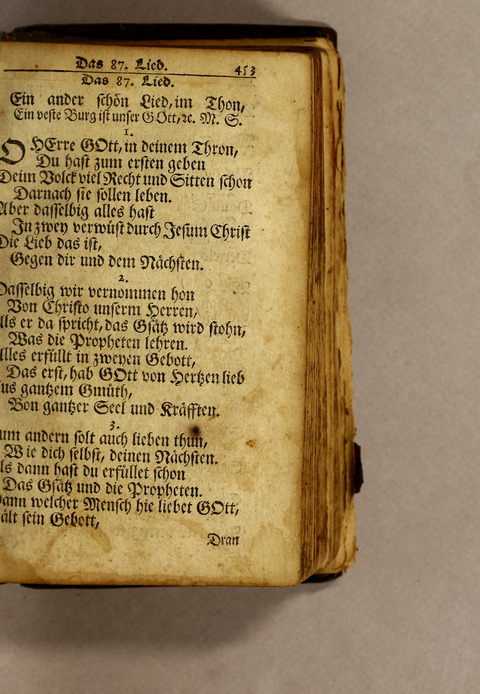 Das 87. Lied. 453
Das 87. Lied.
Ein ander schön Lied, im Thon,
Ein veste Burg ist unser GOtt, ꝛc. M. S.
1.
O HErre GOtt, in deinem Thron,
Du hast zum ersten geben
Deim Volck viel Recht und Sitten schon
Darnach sie sollen leben.
Aber dasselbig alles hast
In zwey verwüst durch Jesum Christ
Die Lieb das ist,
Gegen dir und dem Nächsten.
2.
Dasselbig wir vernommen hon
Von Christo unserm Herren,
Als er da spricht, das Gsätz wird stohn,
Was die Propheten lehren.
Alles erfüllt in zweyen Gebott,
Das erst, hab GOtt von Hertzen lieb
Aus gantzem Gmüth,
Von gantzer Seel und Kräfften.
3.
um andern solt auch lieben thun,
Wie dich selbst, deinen Nächsten.
ls dann hast du erfüllet schon
Das Gsätz und die Propheten.
ann welcher Mensch hie liebet GOtt,
ält sein Gebott,
Dran